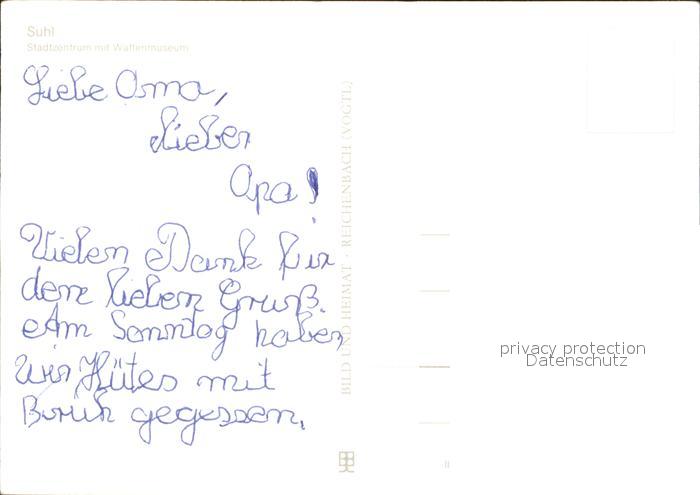 Suhl
Stadtzentrum mit Waffenmuseum
Liebe Oma,
Lieber
Opa!
Vielen Dank für
den lieben Gruß.
Am Sonntag haben
wir Hütes mit
gegessen.
BILD UND HEIMAT · REICHENBACH (VOGTL)
privacy protection
Datenschutz